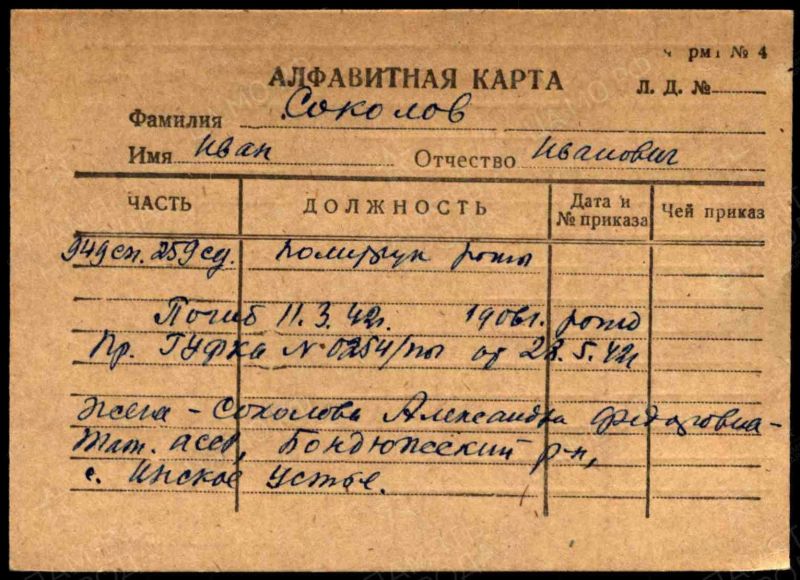 рм № 4
АЛФАВИТНАЯ КАРТА
Л. Д. №
Фамилия Соколов
Имя Иван Отчество Иванович
ЧАСТЬ ДОЛЖНОСТЬ Дата и № приказа Чей приказ
949 сп. 259 сд. Политрук роты
Погиб 11.3.42г. 1906г. рожд
Пр. ГУФКА № 0254/пы от 28.5.42г
Жена - Соколова Александра Федоровна -
Тат. асср, Бондюжский р-н,
с. Инское Устье.